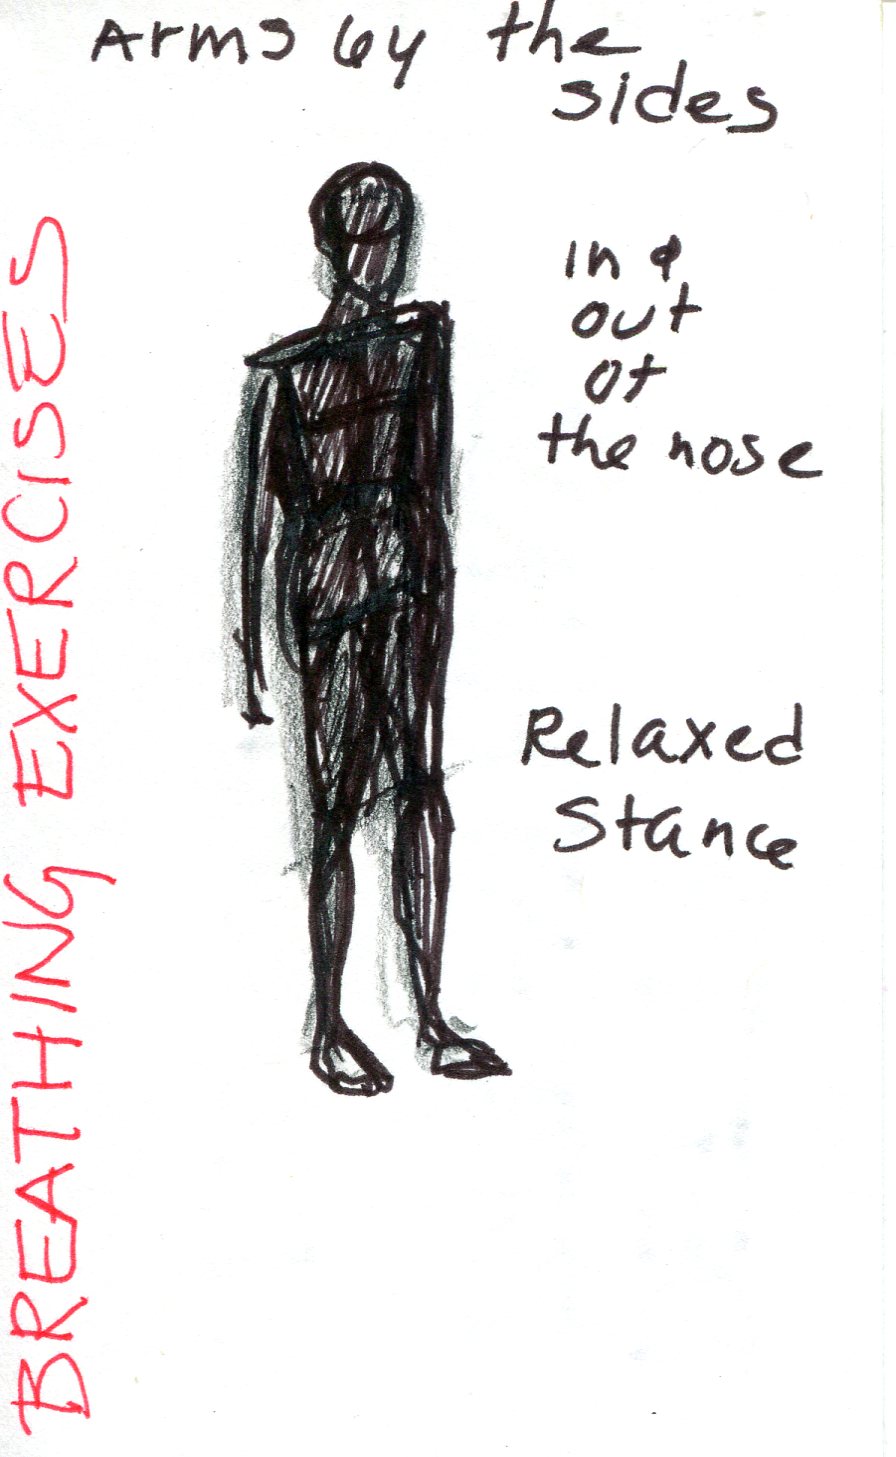 Arms by the
sides
in &
out
of
the nose
Relaxed
Stance
BREATHING EXERCISES